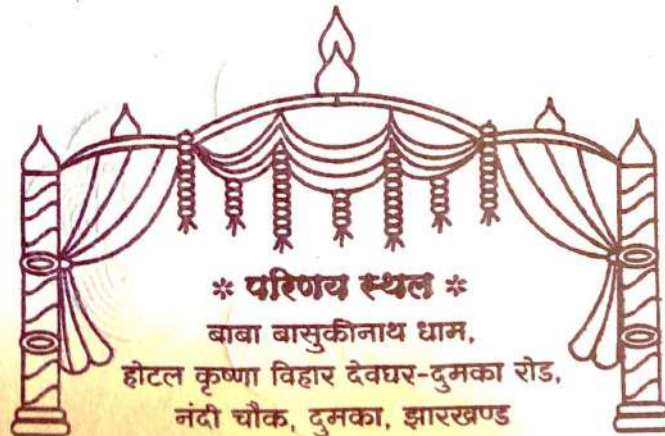 * परिणय स्थल *
बाबा बासुकीनाथ धाम,
होटल कृष्णा विहार देवघर-दुमका रोड,
नंदी चौक, दुमका, झारखण्ड